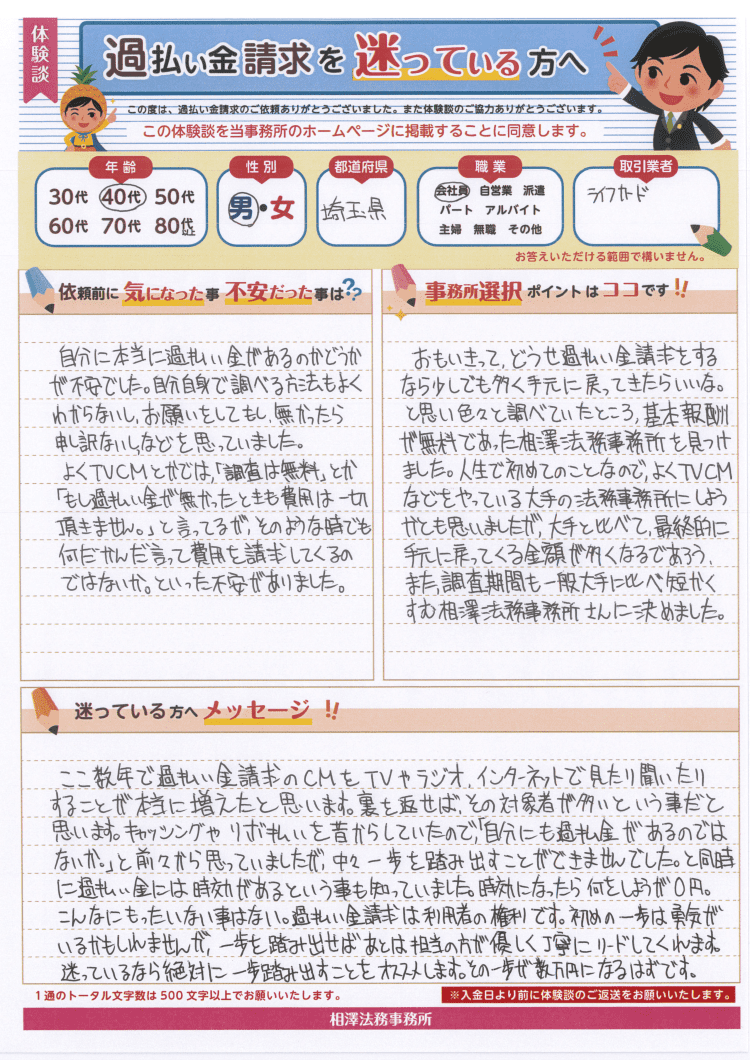 体験談
過払い金請求を迷っている方へ
この度は、過払い金請求のご依頼ありがとうございました。また体験談のご協力ありがとうございます。
この体験談を当事務所のホームページに掲載することに同意します。
年齢
30代 40代 50代
60代 70代 80代以上
性別
男・女
都道府県
埼玉県
職業
会社員 自営業 派遣
パート アルバイト
主婦 無職 その他
取引業者
ライフカード
お答えいただける範囲で構いません。
依頼前に気になった事不安だった事は??
自分に本当に過払い金があるのかどうか
が不安でした。自分自身で調べる方法もよく
わからないし、お願いをしてもし、無かったら
申し訳ないしなどを思っていました。
よくTVCMとかでは、「調査は無料」とか
「もし過払い金が無かったときも費用は一切
頂きません。」と言ってるが、そのような時でも
何だかんだ言って費用を請求してくるの
ではないか。といった不安がありました。
事務所選択ポイントはココです!!
おもいきって、どうせ過払い金請求をする
なら少しでも多く手元に戻ってきたらいいな。
と思い色々と調べていたところ、基本報酬
が無料であった相澤法務事務所を見つけ
ました。人生で初めてのことなので、よくTVCM
などをやっている大手の法務事務所にしよう
かとも思いましたが、大手と比べて、最終的に
手元に戻ってくる金額が多くなるであろう、
また、調査期間も一般大手に比べ短かく
すむ相澤法務事務所さんに決めました。
迷っている方へメッセージ!!
ここ数年で過払い金請求のCMをTVやラジオ、インターネットで見たり聞いたり
することが本当に増えたと思います。裏を返せば、その対象者が多いという事だと
思います。キャッシングやリボ払いを昔からしていたので、「自分にも過払金があるのでは
ないか。」と前々から思っていましたが、中々一歩を踏み出すことができませんでした。と同時
に過払い金には時効があるという事も知っていました。時効になったら何をしようが0円。
こんなにもったいない事はない。過払い金請求は利用者の権利です。初めの一歩は勇気が
いるかもしれませんが、一歩を踏み出せばあとは担当の方が優しく丁寧にリードしてくれます。
迷っているなら絶対に一歩踏み出すことをオススメします。その一歩が数万円になるはずです。
1通のトータル文字数は500文字以上でお願いいたします。
※入金日より前に体験談のご返送をお願いいたします。
相澤法務事務所